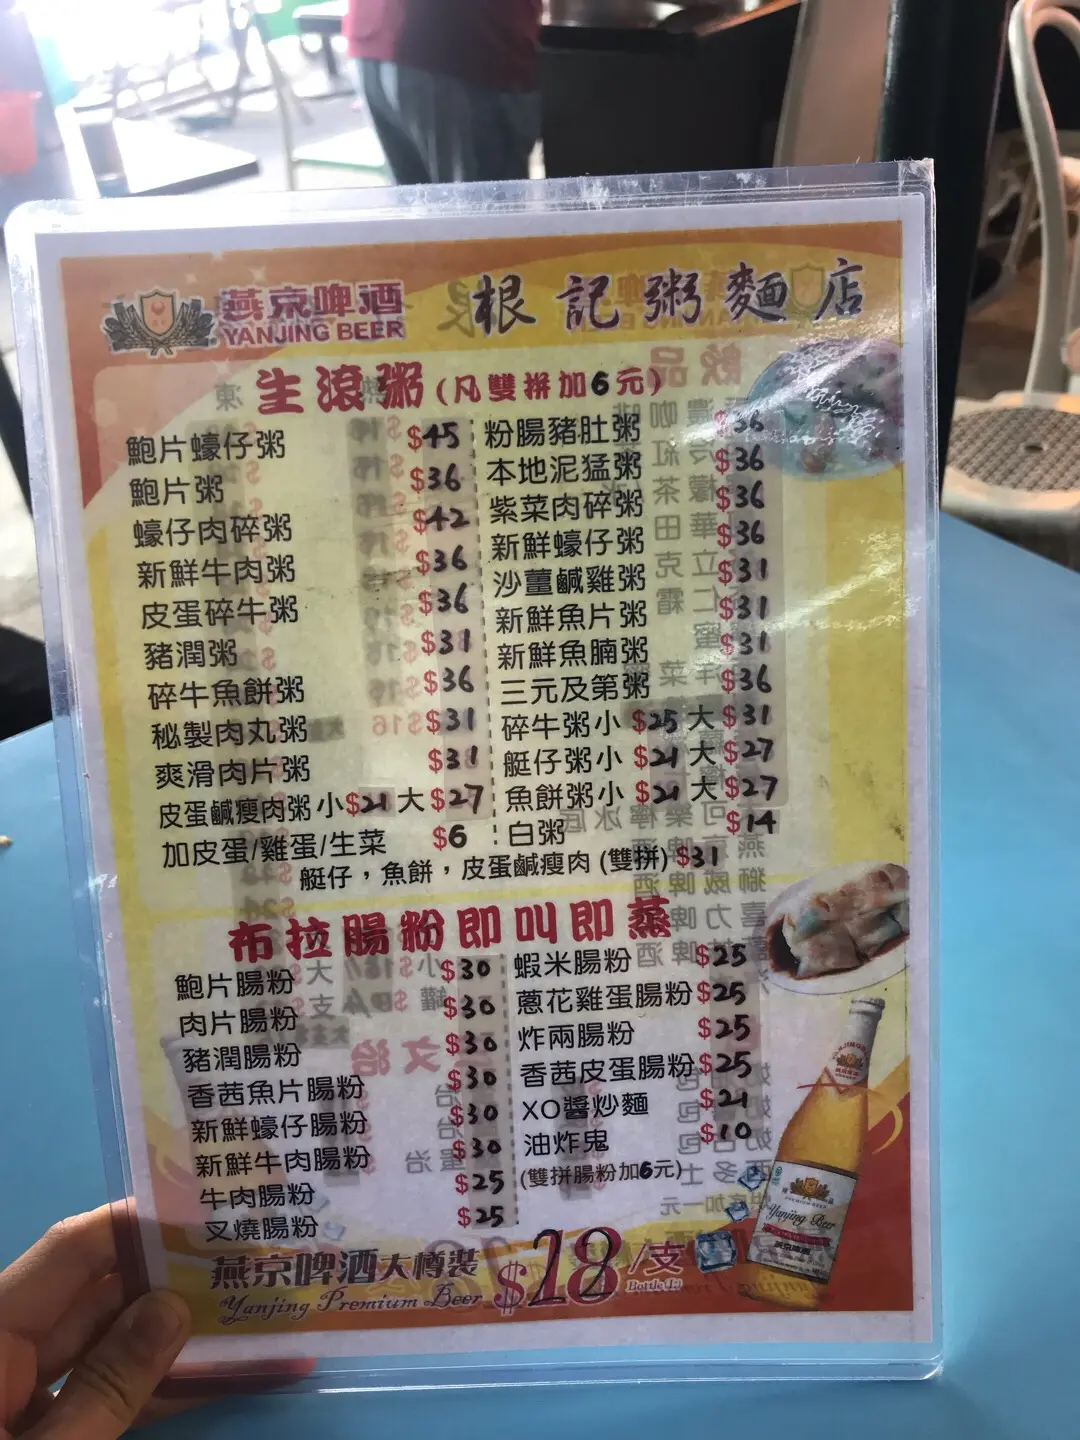 燕京啤酒
YANJING BEER
根記粥麵店
生滾粥(凡雙拼加6元)
鮑片蠔仔粥 $45
鮑片粥 $36
蠔仔肉碎粥 $42
新鮮牛肉粥 $36
皮蛋碎牛粥 $36
豬潤粥 $31
碎牛魚餅粥 $36
秘製肉丸粥 $31
爽滑肉片粥 $31
皮蛋鹹瘦肉粥 小$21 大$27
加皮蛋/雞蛋/生菜 $6
粉腸豬肚粥 $36
本地泥猛粥 $36
紫菜肉碎粥 $36
新鮮蠔仔粥 $36
沙薑鹹雞粥 $31
新鮮魚片粥 $31
新鮮魚腩粥 $31
三元及第粥 $36
碎牛粥小 $25 大 $31
艇仔粥小 $21 大 $27
魚餅粥小 $21 大 $27
白粥 $14
艇仔，魚餅，皮蛋鹹瘦肉 (雙拼) $31
布拉腸粉即叫即蒸
鮑片腸粉 $30
肉片腸粉 $30
豬潤腸粉 $30
香茜魚片腸粉 $30
新鮮蠔仔腸粉 $30
新鮮牛肉腸粉 $30
牛肉腸粉 $25
叉燒腸粉 $25
蝦米腸粉 $25
蔥花雞蛋腸粉 $25
炸兩腸粉 $25
香茜皮蛋腸粉 $25
XO醬炒麵 $21
油炸鬼 $10
(雙拼腸粉加6元)
燕京啤酒大樽裝
Yanjing Premium Beer
$18/支
Bottle(L)
Yanjing Beer